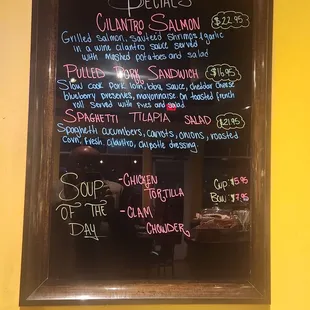 SPECIALS
CILANTRO SALMON $22.95
Grilled salmon, sauteed shrimps & garlic
in a wine cilantro sauce served
with Mashed potatoes and salad
PULLED PORK SANDWICH $16.95
Slow cook pork loin, bbq sauce, cheddar cheese
blueberry preserves, mayonnaise on toasted french
roll served with fries and salad
SPAGHETTI TILAPIA SALAD $21.95
Spaghetti cucumbers, carrots, onions, roasted
Corn, fresh cilantro, chipotle dressing
SOUP OF THE DAY
-CHICKEN TORTILLA
-CLAM CHOWDER
Cup $5.95
Bowl $7.95